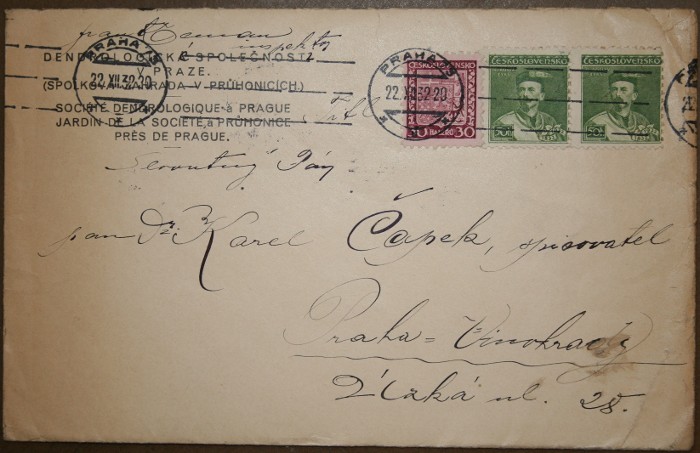 pan Zeman
inspektor
DENDROLOGICKÁ SPOLEČNOST
V PRAZE.
(SPOLKOVÁ ZAHRADA V PRŮHONICÍCH.)
SOCIÉTÉ DENDROLOGIQUE à PRAGUE
JARDIN DE LA SOCIÉTÉ à PRŮHONICE
PRÈS DE PRAGUE.
PRAHA
22.XII.32.20
PRAHA
22.XII.32.20
ČESKOSLOVENSKO
30 30
ČESKOSLOVENSKO
50h
ČESKOSLOVENSKO
50h
Slovutný Pán
pan Dr. Karel Čapek, spisovatel
Praha = Vinohrady
Úzká ul. 28.